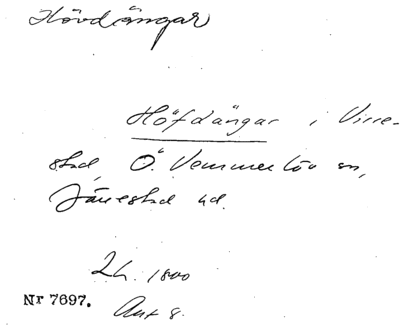 Hövdängar
Höfdängar i Virre-
stad, Ö. Vemmerlöv sn,
Järrestad hd.
2 h. 1800
Nr 7697.
8.